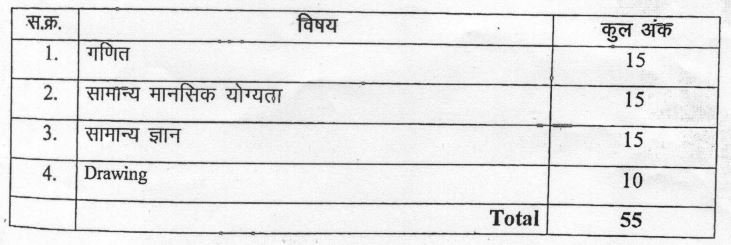 स.क्र. विषय कुल अंक
1. गणित 15
2. सामान्य मानसिक योग्यता 15
3. सामान्य ज्ञान 15
4. Drawing 10
Total 55